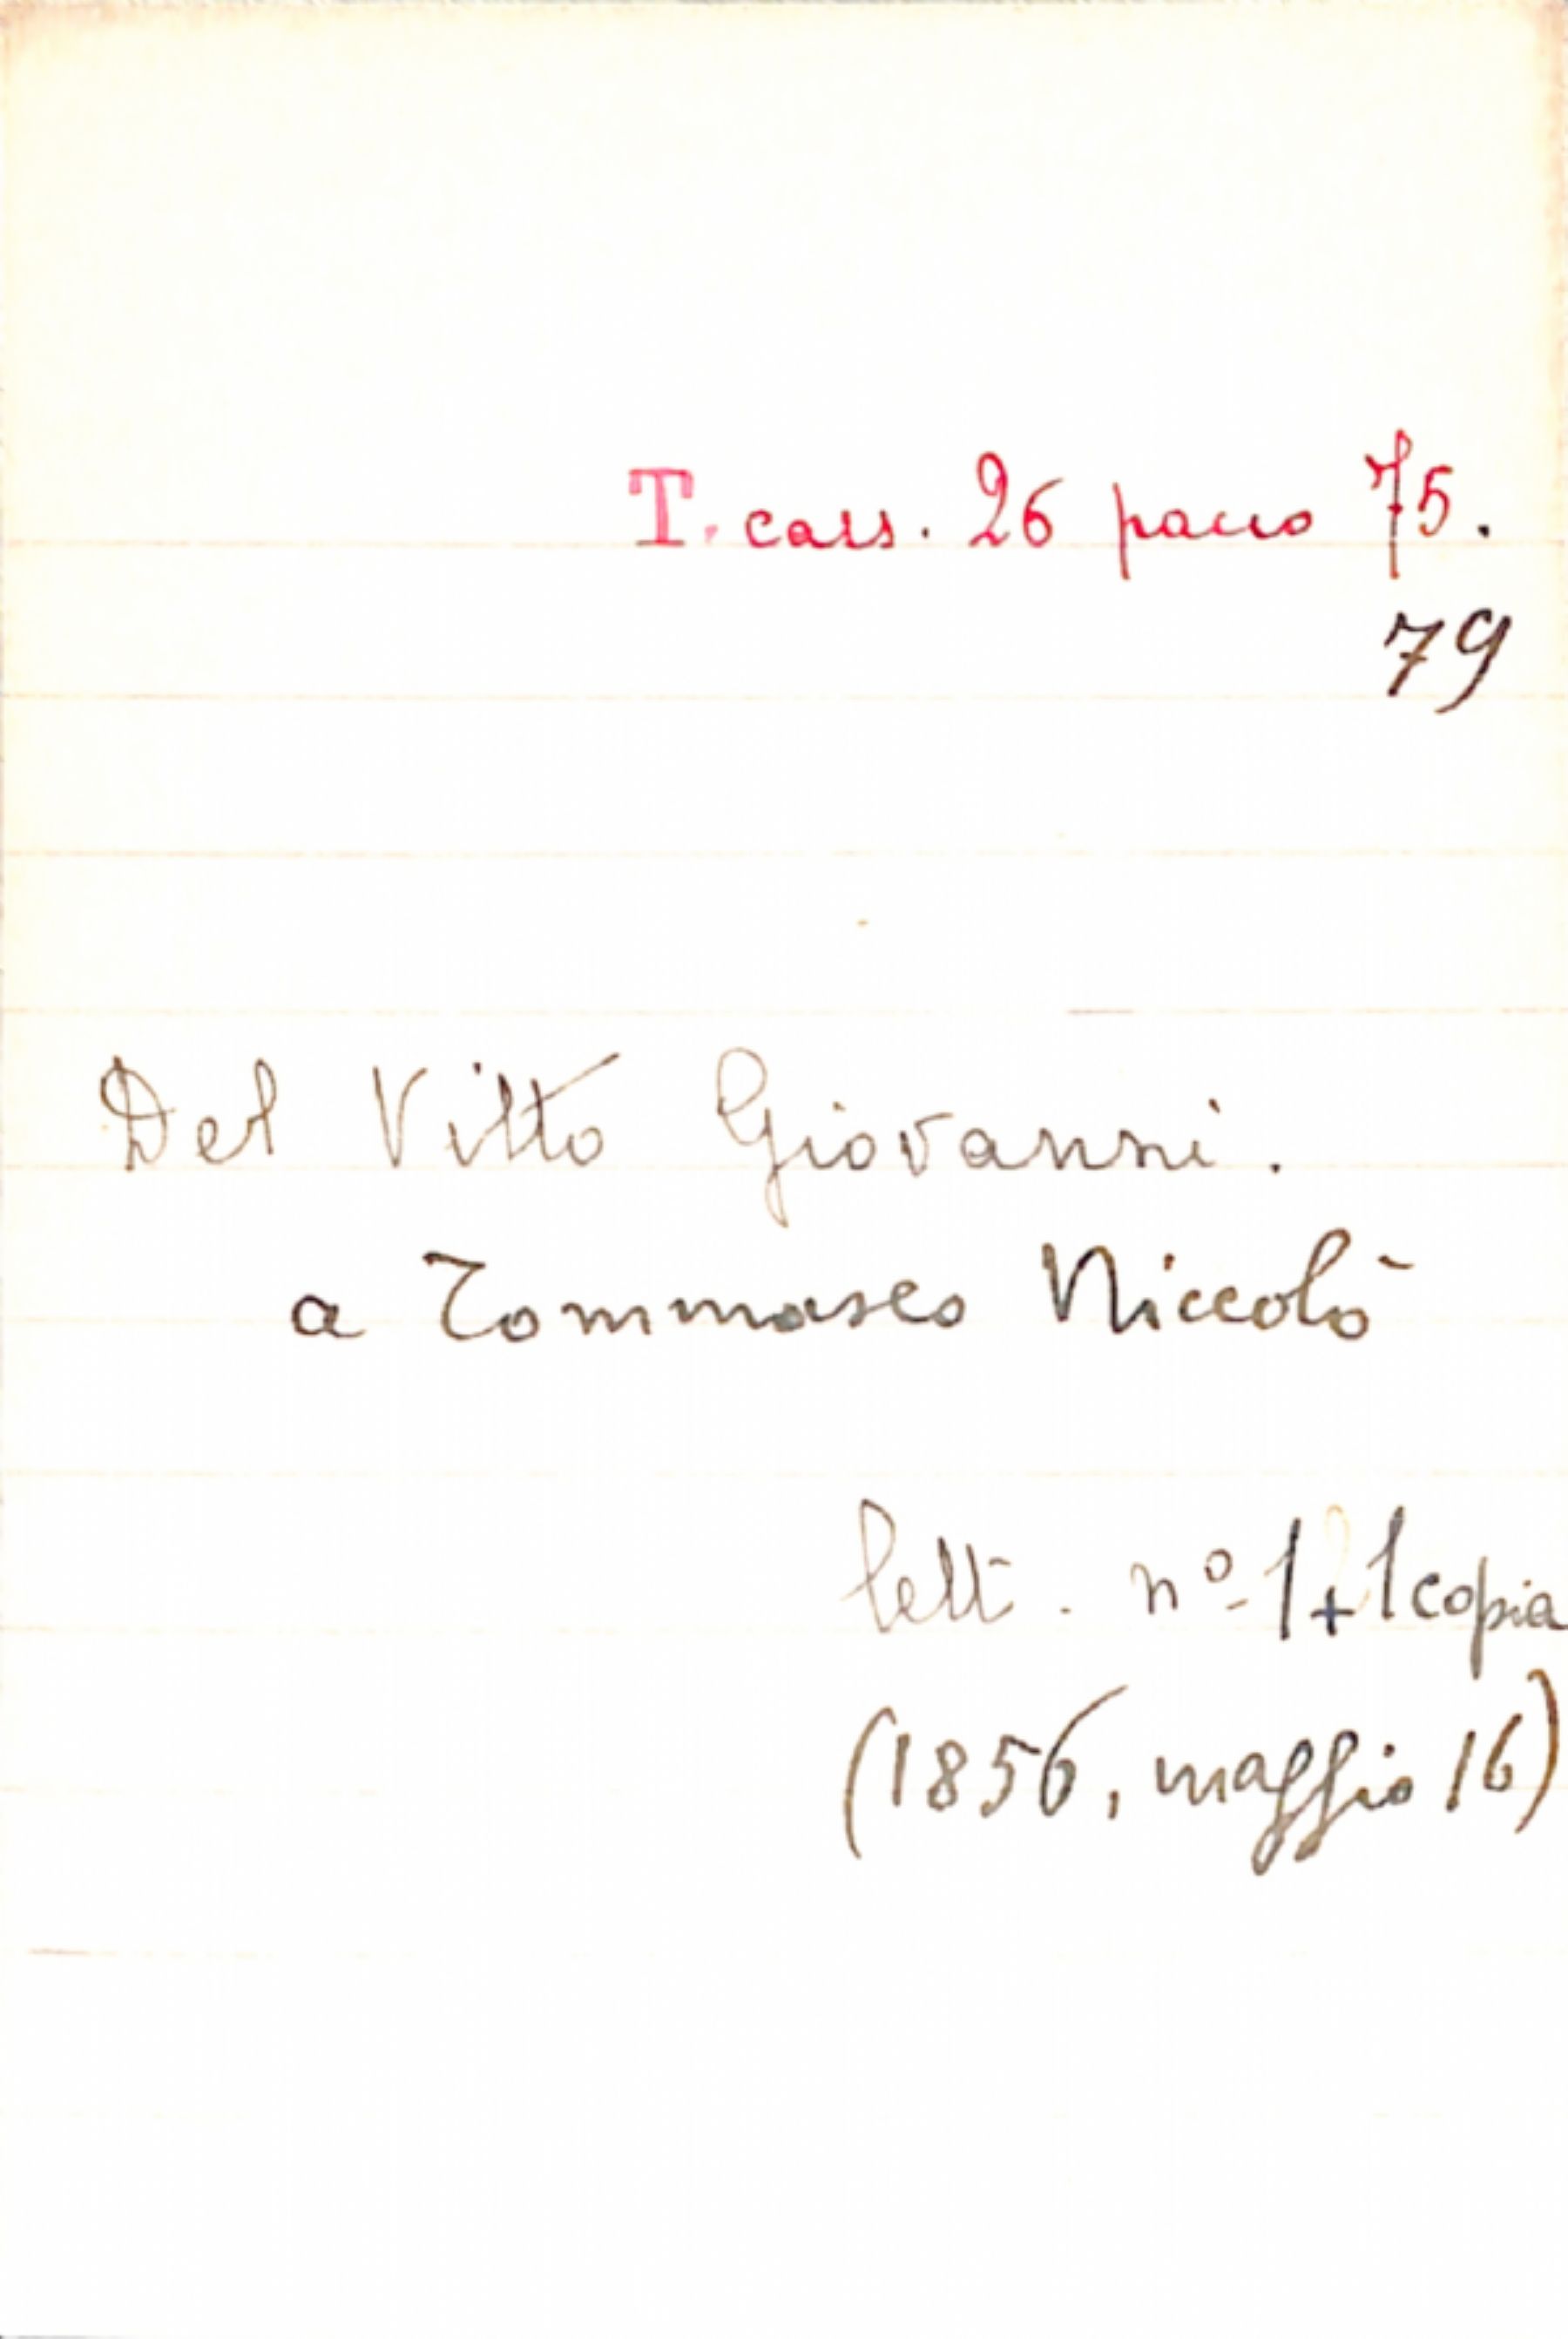 T. cass. 26 pacco 75.
79
Del Vitto Giovanni.
a Tommaseo Niccolò
lett. nº 1 + 1 copia
(1856, maggio 16)